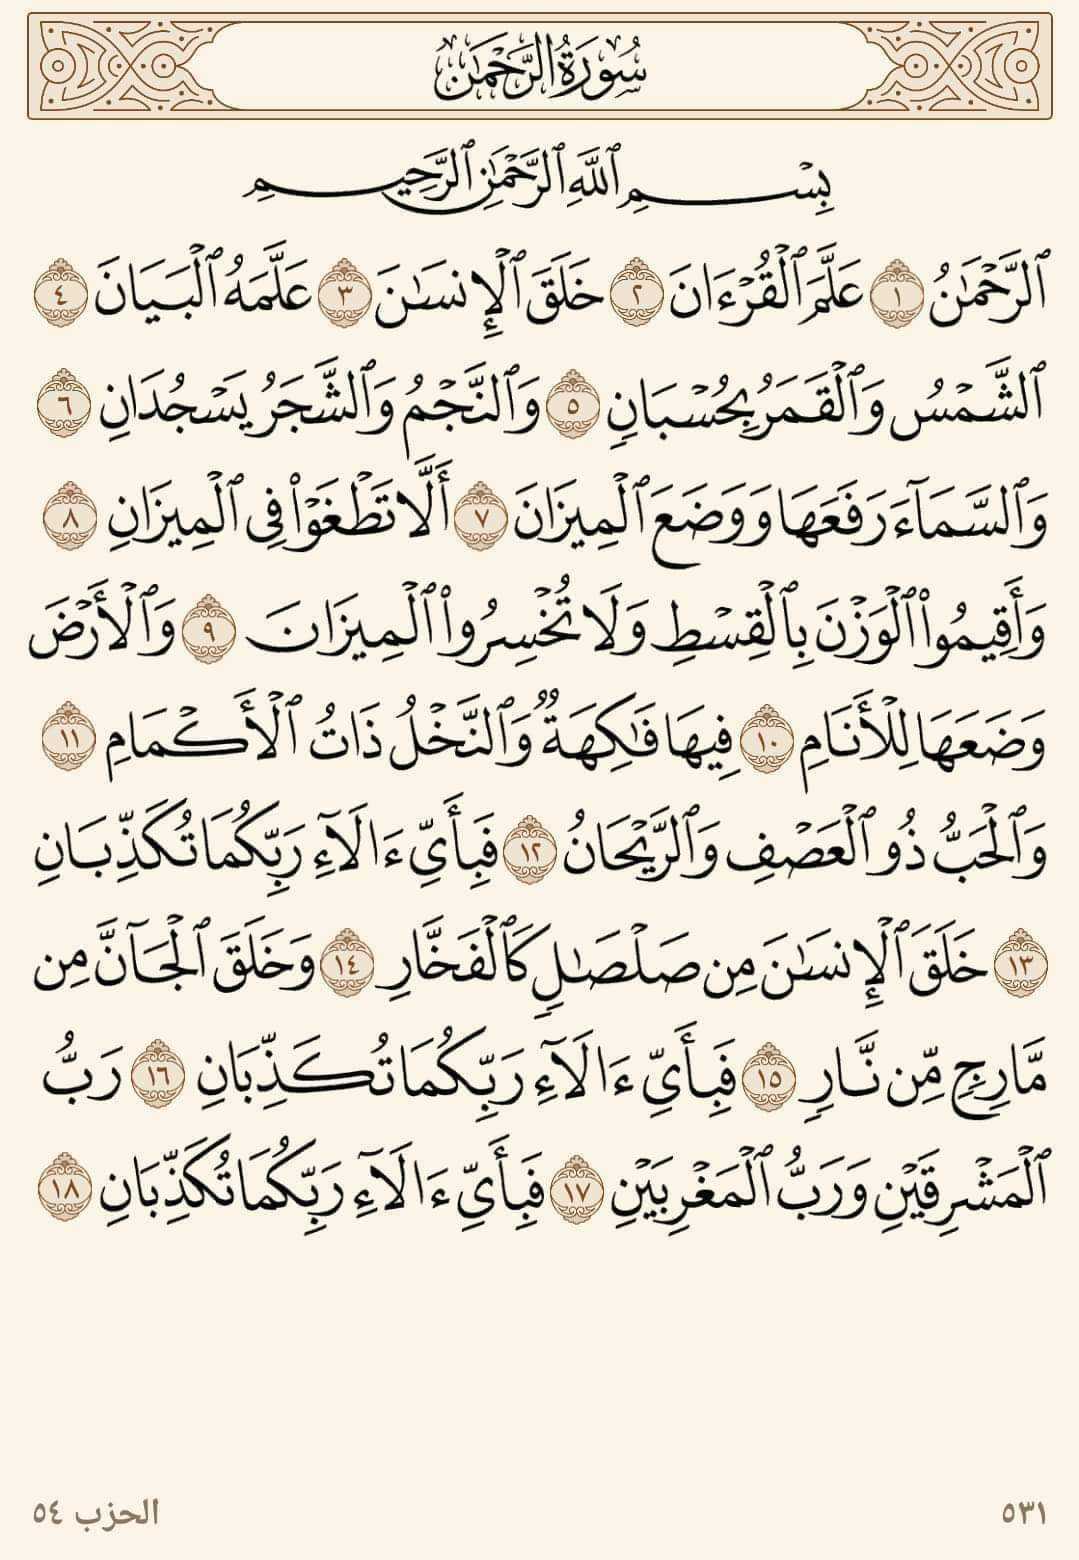 سُورَةُ الرَّحْمَٰن
بِسْمِ ٱللَّهِ ٱلرَّحْمَٰنِ ٱلرَّحِيمِ
ٱلرَّحْمَٰنُ ١ عَلَّمَ ٱلْقُرْءَانَ ٢ خَلَقَ ٱلْإِنسَٰنَ ٣ عَلَّمَهُ ٱلْبَيَانَ ٤
ٱلشَّمْسُ وَٱلْقَمَرُ بِحُسْبَانٍ ٥ وَٱلنَّجْمُ وَٱلشَّجَرُ يَسْجُدَانِ ٦
وَٱلسَّمَآءَ رَفَعَهَا وَوَضَعَ ٱلْمِيزَانَ ٧ أَلَّا تَطْغَوْا۟ فِى ٱلْمِيزَانِ ٨
وَأَقِيمُوا۟ ٱلْوَزْنَ بِٱلْقِسْطِ وَلَا تُخْسِرُوا۟ ٱلْمِيزَانَ ٩ وَٱلْأَرْضَ
وَضَعَهَا لِلْأَنَامِ ١٠ فِيهَا فَٰكِهَةٌ وَٱلنَّخْلُ ذَاتُ ٱلْأَكْمَامِ ١١
وَٱلْحَبُّ ذُو ٱلْعَصْفِ وَٱلرَّيْحَانُ ١٢ فَبِأَىِّ ءَالَآءِ رَبِّكُمَا تُكَذِّبَانِ
١٣ خَلَقَ ٱلْإِنسَٰنَ مِن صَلْصَٰلٍ كَٱلْفَخَّارِ ١٤ وَخَلَقَ ٱلْجَآنَّ مِن
مَّارِجٍ مِّن نَّارٍ ١٥ فَبِأَىِّ ءَالَآءِ رَبِّكُمَا تُكَذِّبَانِ ١٦ رَبُّ
ٱلْمَشْرِقَيْنِ وَرَبُّ ٱلْمَغْرِبَيْنِ ١٧ فَبِأَىِّ ءَالَآءِ رَبِّكُمَا تُكَذِّبَانِ ١٨
٥٣١ الحزب ٥٤